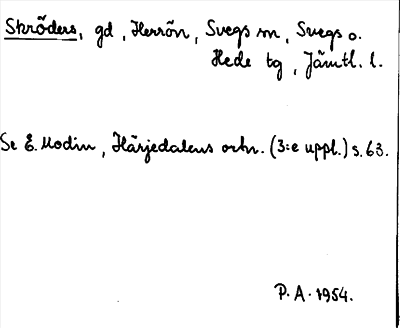 Skröders, gd, Herrön, Svegs sn, Svegs o.
Hede tg, Jämtl. l.
Se E. Modin, Härjedalens ortn. (3:e uppl.) s. 63.
P. A. 1954.